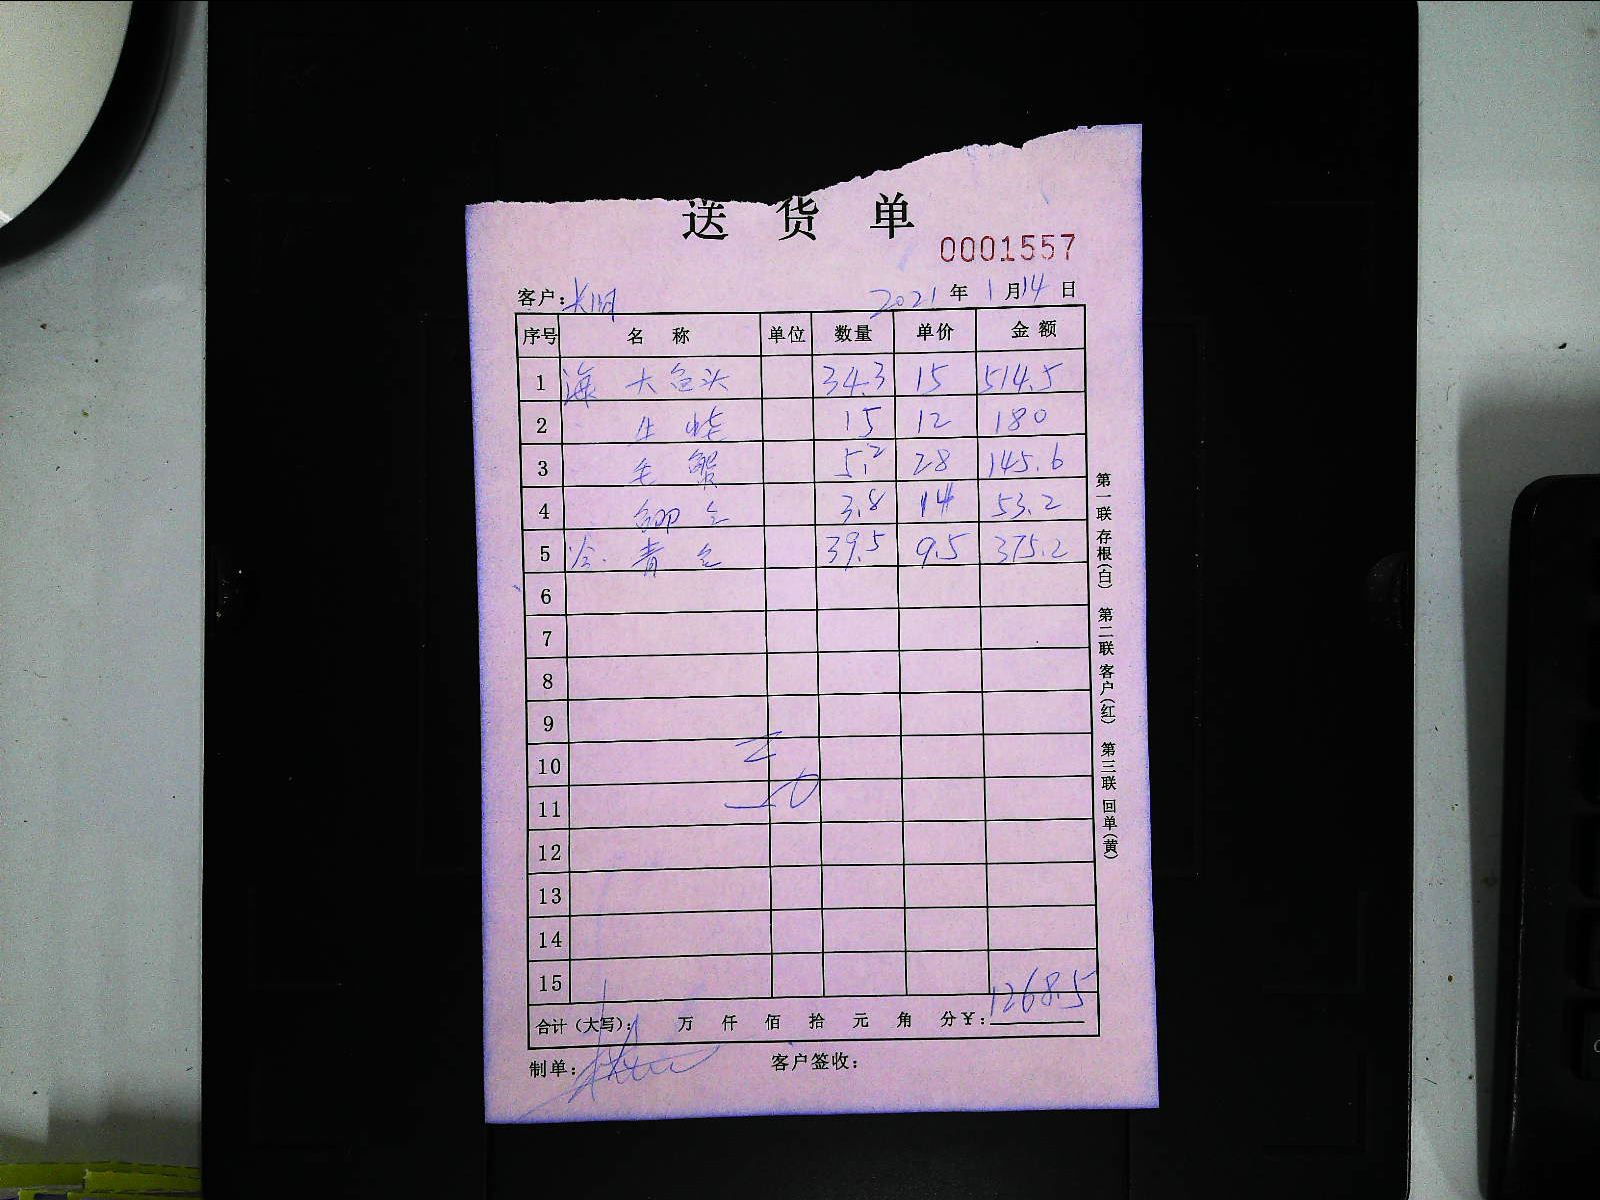 送 货 单
0001557
客户: 2021 年 1 月 14 日
序号 名 称 单位 数量 单价 金 额
1 海 大鱼头 34.3 15 514.5
2 生蚝 15 12 180
3 毛 蟹 5.2 28 145.6
4 3.8 14 53.2
5 冷. 青 39.5 9.5 375.2
6
7
8
9
10
11
12
13
14
15
合计（大写）: 万 仟 佰 拾 元 角 分 ¥: 1268.5
制单: 客户签收:
第一联 存根(白) 第二联 客户(红) 第三联 回单(黄)